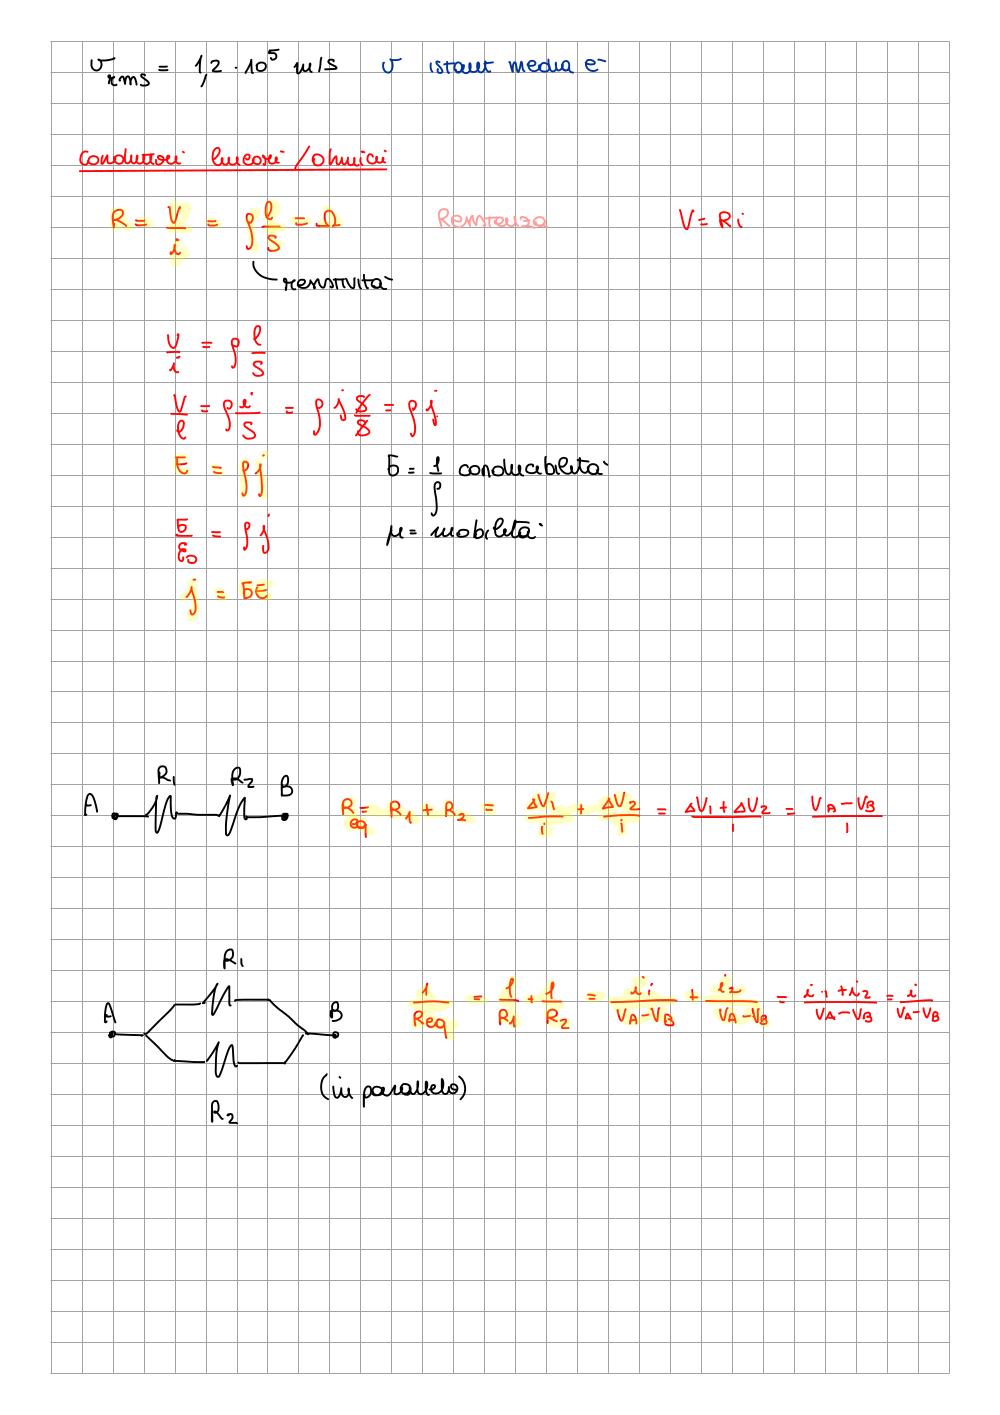 v rms = 1,2 · 10⁵ m/s v istant media e⁻
Conduttori lineari / ohmici
R = V/i = ρ l/S = Ω Resistenza V = Ri
resistività
V/i = ρ l/S
V/l = ρ i/S = ρ j S/S = ρ j
E = ρj σ = 1/ρ conducibilità
σ/ε₀ = ρ j μ = mobilità
j = σE
A R₁ R₂ B
Req = R₁ + R₂ = ΔV₁/i + ΔV₂/i = ΔV₁ + ΔV₂/i = VA - VB/i
R₁
A B
1/Req = 1/R₁ + 1/R₂ = i₁/VA - VB + i₂/VA - VB = i₁ + i₂/VA - VB = i/VA - VB
(in parallelo)
R₂